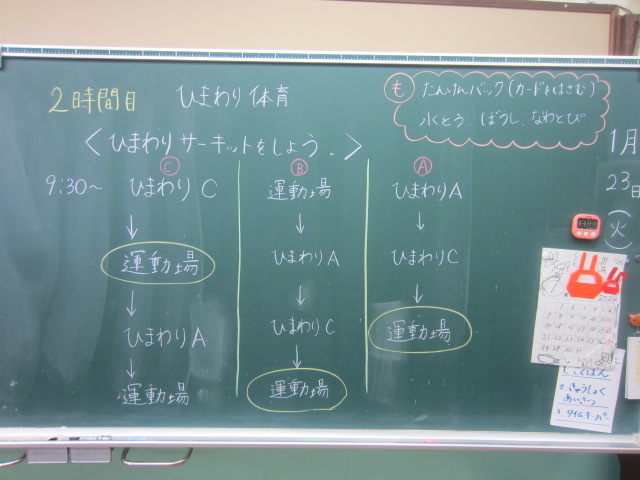 2時間目 ひまわり体育
も たんけんバック(カードをはさむ)
水とう、ぼうし、なわとび
<ひまわりサーキットをしよう。>
1月
23日
(火)
C
9:30～ ひまわりC
↓
運動場
↓
ひまわりA
↓
運動場
B
運動場
↓
ひまわりA
↓
ひまわりC
↓
運動場
A
ひまわりA
↓
ひまわりC
↓
運動場
2024
1.こくばん
2.きゅうしょく
あいさつ
3.タイムキーパー